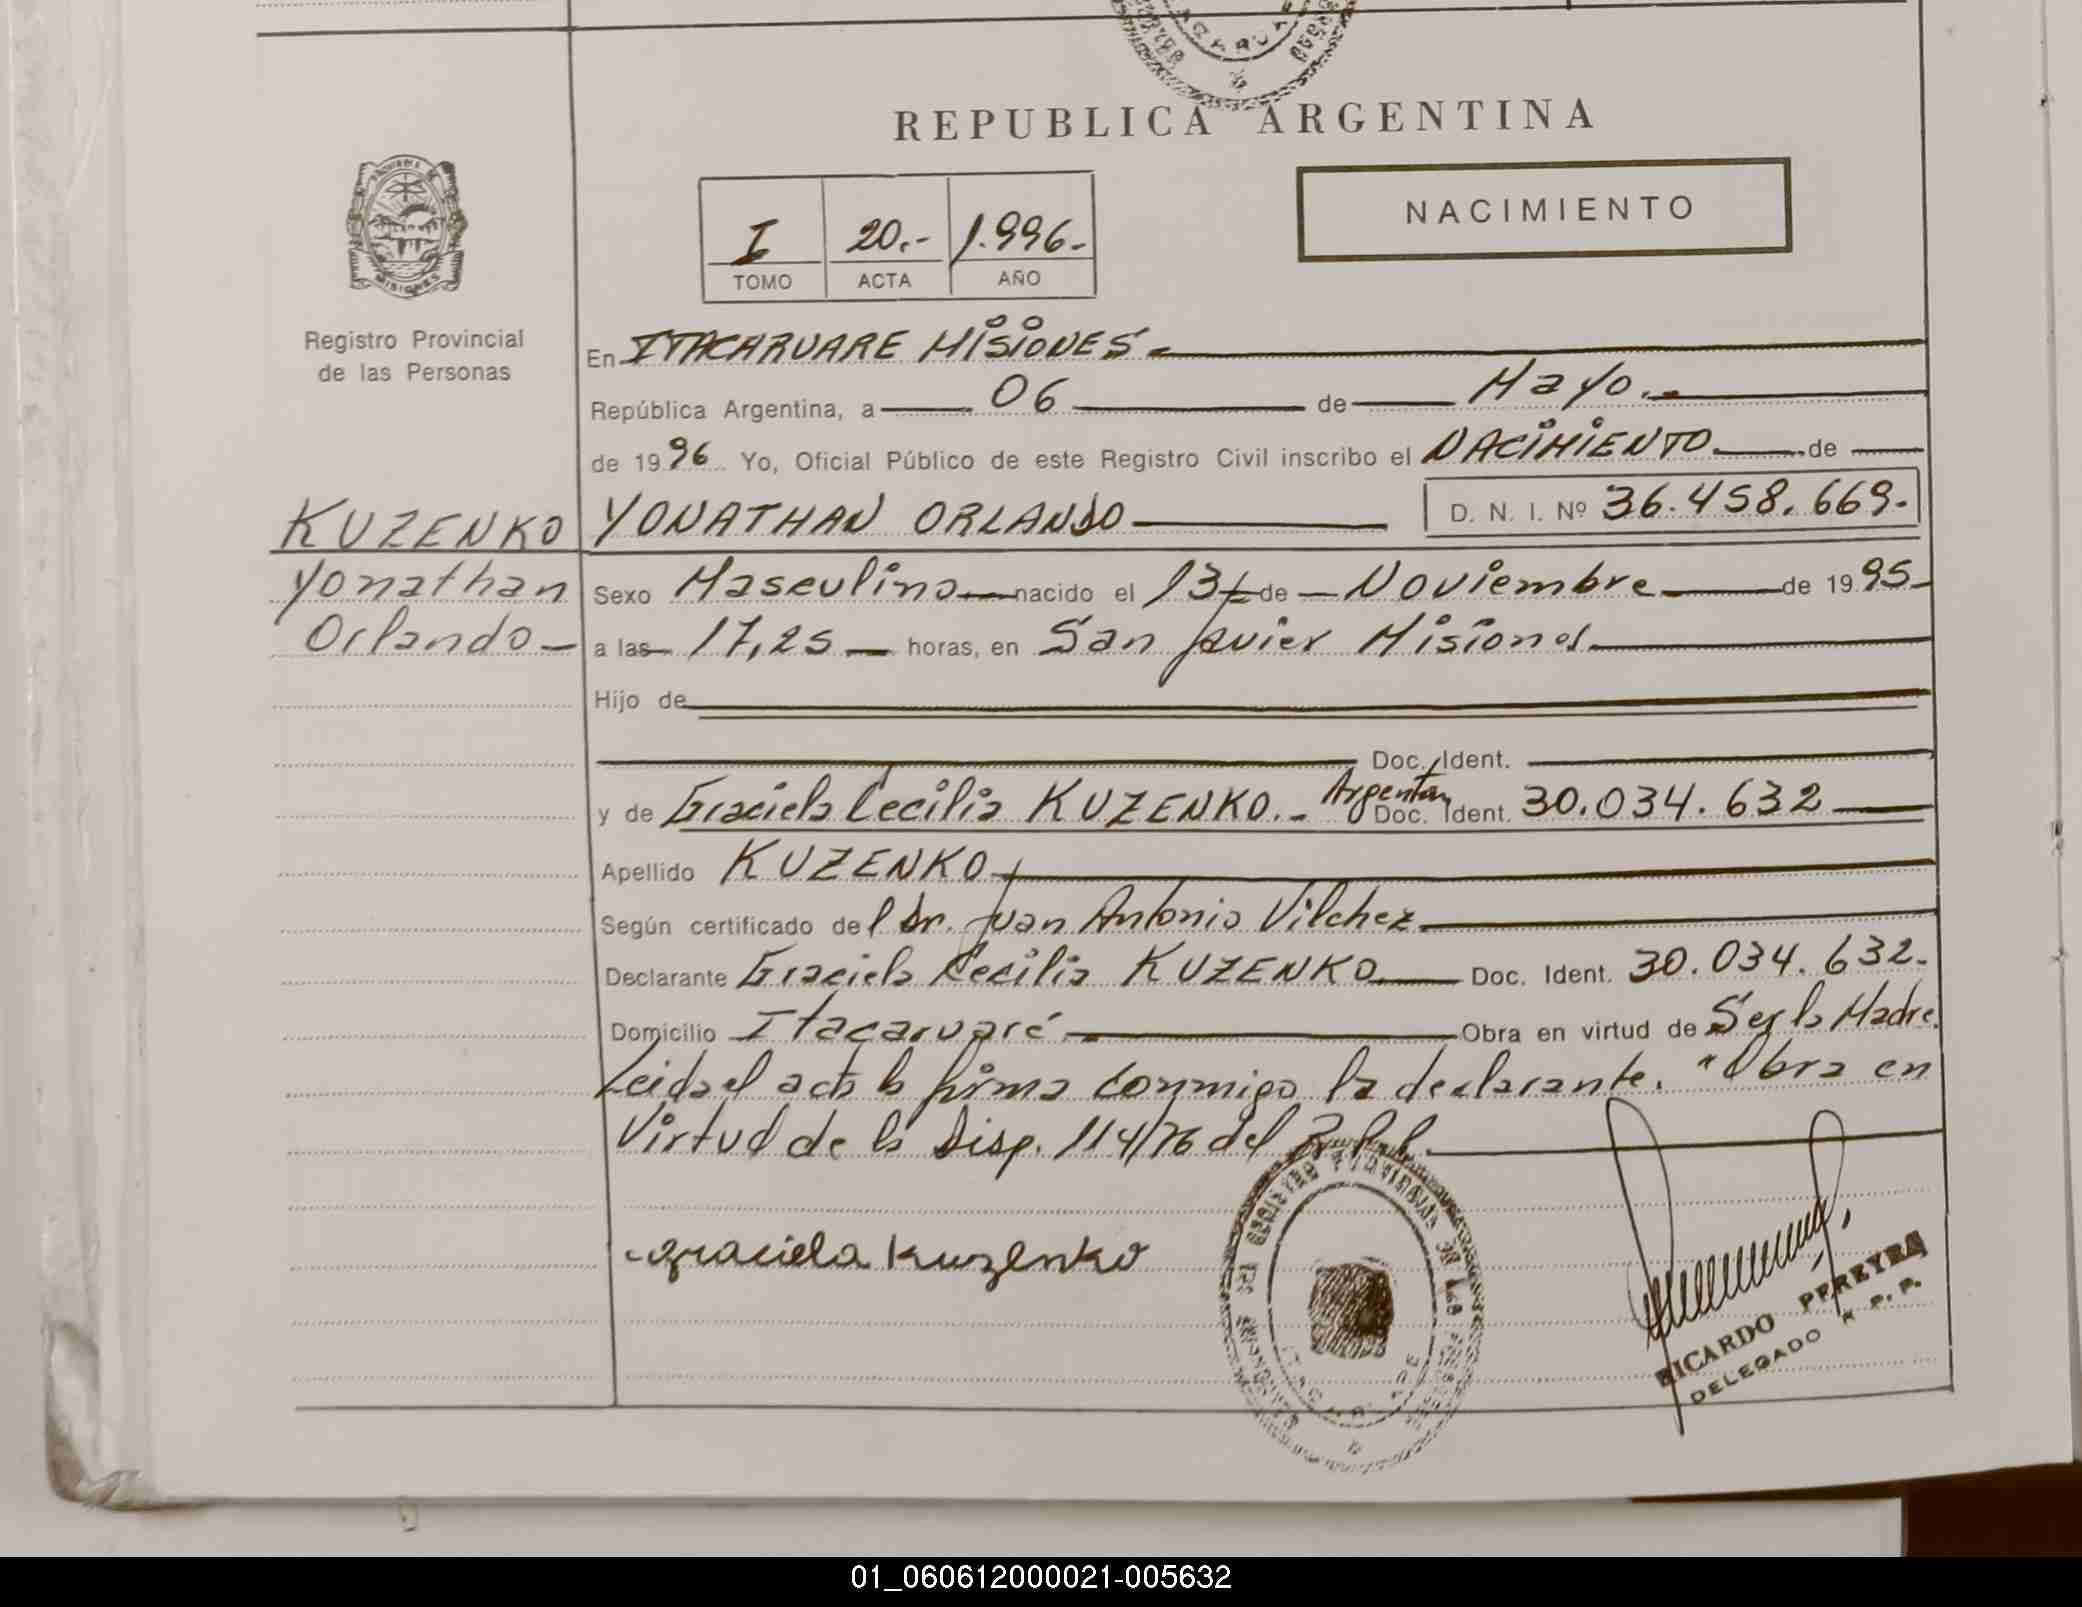 REPUBLICA ARGENTINA
NACIMIENTO
I 20.- 1.996.-
TOMO ACTA AÑO
MISIONES
Registro Provincial
de las Personas
En ITACARUARE MISIONES.-
República Argentina, a 06 de Mayo.-
de 1996 Yo, Oficial Público de este Registro Civil inscribo el NACIMIENTO de
KUZENKO YONATHAN ORLANDO D. N. I. Nº 36.458.669.
Yonathan
Orlando
Sexo Masculino nacido el 13 de Noviembre de 1995
a las 17,25 horas, en San Javier Misiones
Hijo de
Doc. Ident.
y de Graciela Cecilia KUZENKO.- Argentin Doc. Ident. 30.034.632
Apellido KUZENKO
Según certificado del Dr. Juan Antonio Vilchez
Declarante Graciela Cecilia KUZENKO Doc. Ident. 30.034.632.
Domicilio Itacaruaré Obra en virtud de Ser la Madre.
Leida el acta la firma conmigo la declarante. "Obra en
Virtud de la Disp. 114/76 del R.P.P.
Graciela Kuzenko
RICARDO PEREYRA
DELEGADO R. P. P.
01_060612000021-005632